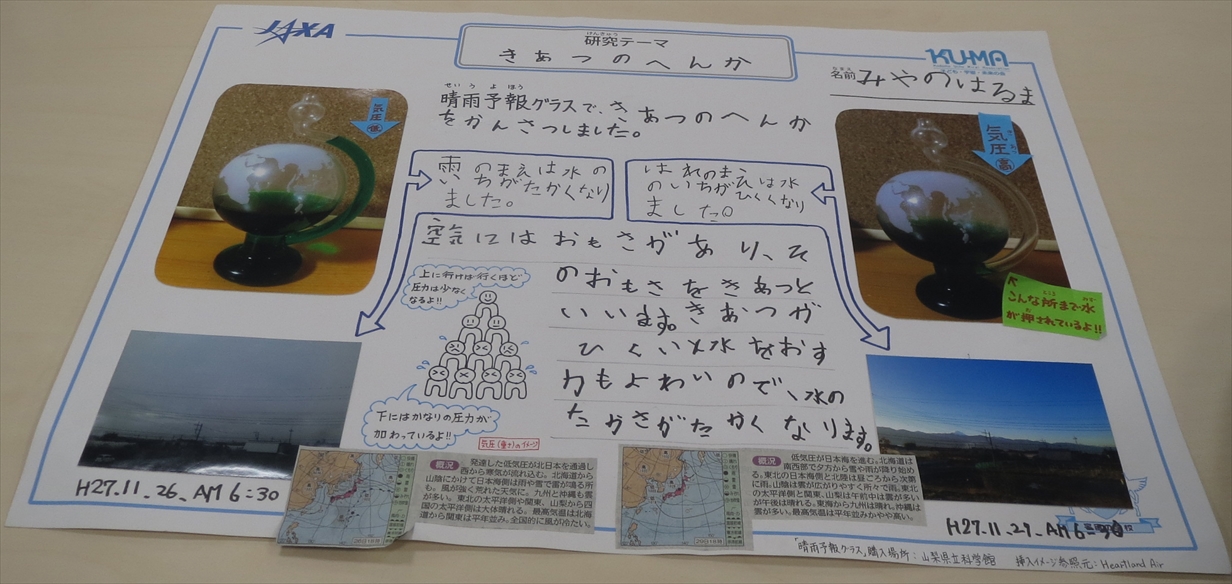 JAXA
研究テーマ
きあつのへんか
KU-MA
名前 みやのはるま
晴雨予報グラスで、きあつのへんか
をかんさつしました。
気圧
低
雨のまえは水の
いちがたかくなり
ました。
はれのまえは水
のいちがひくくなり
ました。
気圧
高
空気にはおもさがあり、そ
のおもさをきあつと
いいます。きあつが
ひくいと水をおす
力もよわいので、水の
たかさがたかくなります。
上に行けば行くほど
圧力は少なく
なるよ!!
下にはかなりの圧力が
加わっているよ!!
気圧(重さ)のイメージ
こんな所まで水
が押されているよ!!
H27.11.26.AM6:30
概況
発達した低気圧が北日本を通過し
西から寒気が流れ込む。北海道から
山陰にかけて日本海側は雨や雪で雷が鳴る所
も。風が強く荒れた天気に。九州と沖縄も雲
が多い。東北の太平洋側や関東、山梨から四
国の太平洋側は大体晴れる。最高気温は北海
道から関東は平年並み。全国的に風が冷たい。
概況
低気圧が日本海を進む。北海道は
南西部で夕方から雪や雨が降り始め
る。東北の日本海側と北陸は昼ごろから次第
に雨。山陰は雲が広がりやすく所々で雨。東北
の太平洋側と関東、山梨は午前中は雲が多い
が午後は晴れる。東海から九州は晴れ。沖縄は
雲が多い。最高気温は平年並みかやや高い。
「晴雨予報グラス」購入場所:山梨県立科学館 挿入イメージ参照元:Heartland Air